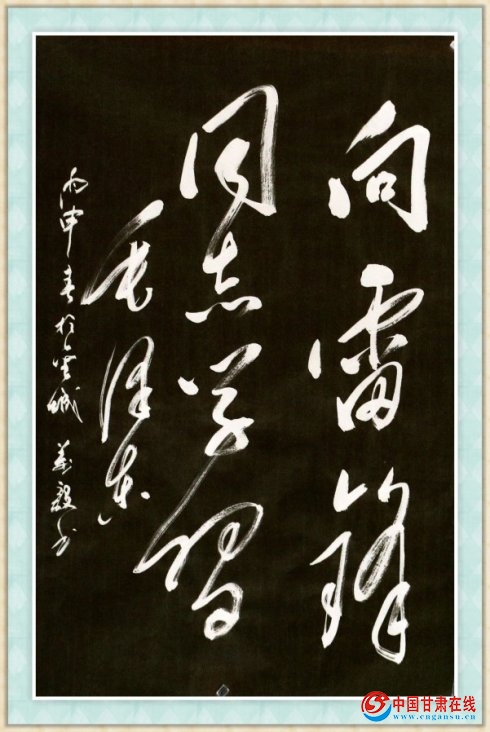 向雷锋
同志学习
毛泽东
丙申春于金城 毅书
中国甘肃在线
www.cngansu.cn